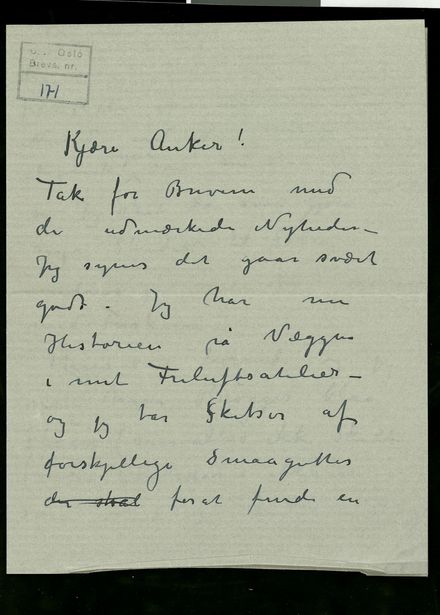 U. B. Oslo
Brevs. nr.
171
Kjære Anker!
Tak for Brevene med
de udmærkede Nyheder –
Jeg synes det gaar svært
godt. Jeg har nu
Historien på Væggen
i mit Friluftsatelier –
og jeg tar Skitser af
forskjellige Smaagutter
der skal for at finde en